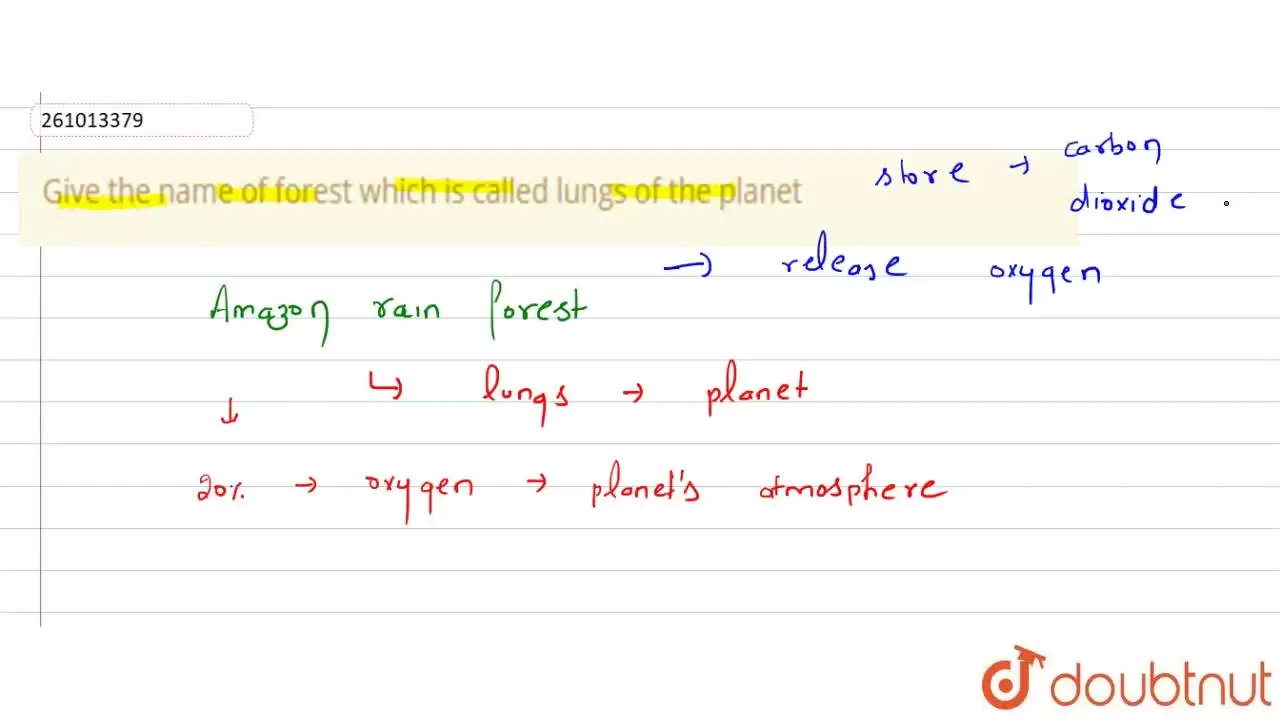 261013379
Give the name of forest which is called lungs of the planet
store → carbon
dioxide
→ release oxygen
Amazon rain forest
↳ lungs → planet
↓
20% → oxygen → planet's atmosphere
doubtnut